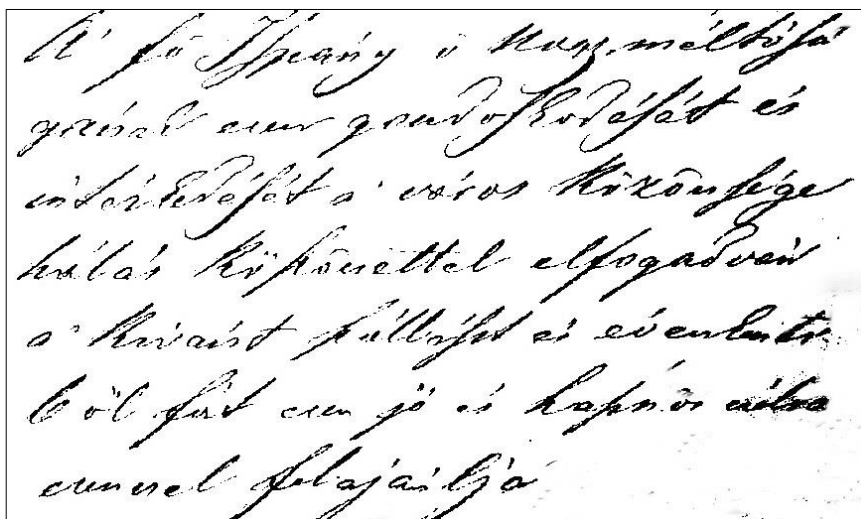 A' fő Ispány ő nagy méltósá
gának ezen gondoskodását és
intézkedését a' város közönsége
hálás köszönettel elfogadván
a' kivánt szállást és
ből fát ezen jó és hasznos czélra
ezennel felajánlja